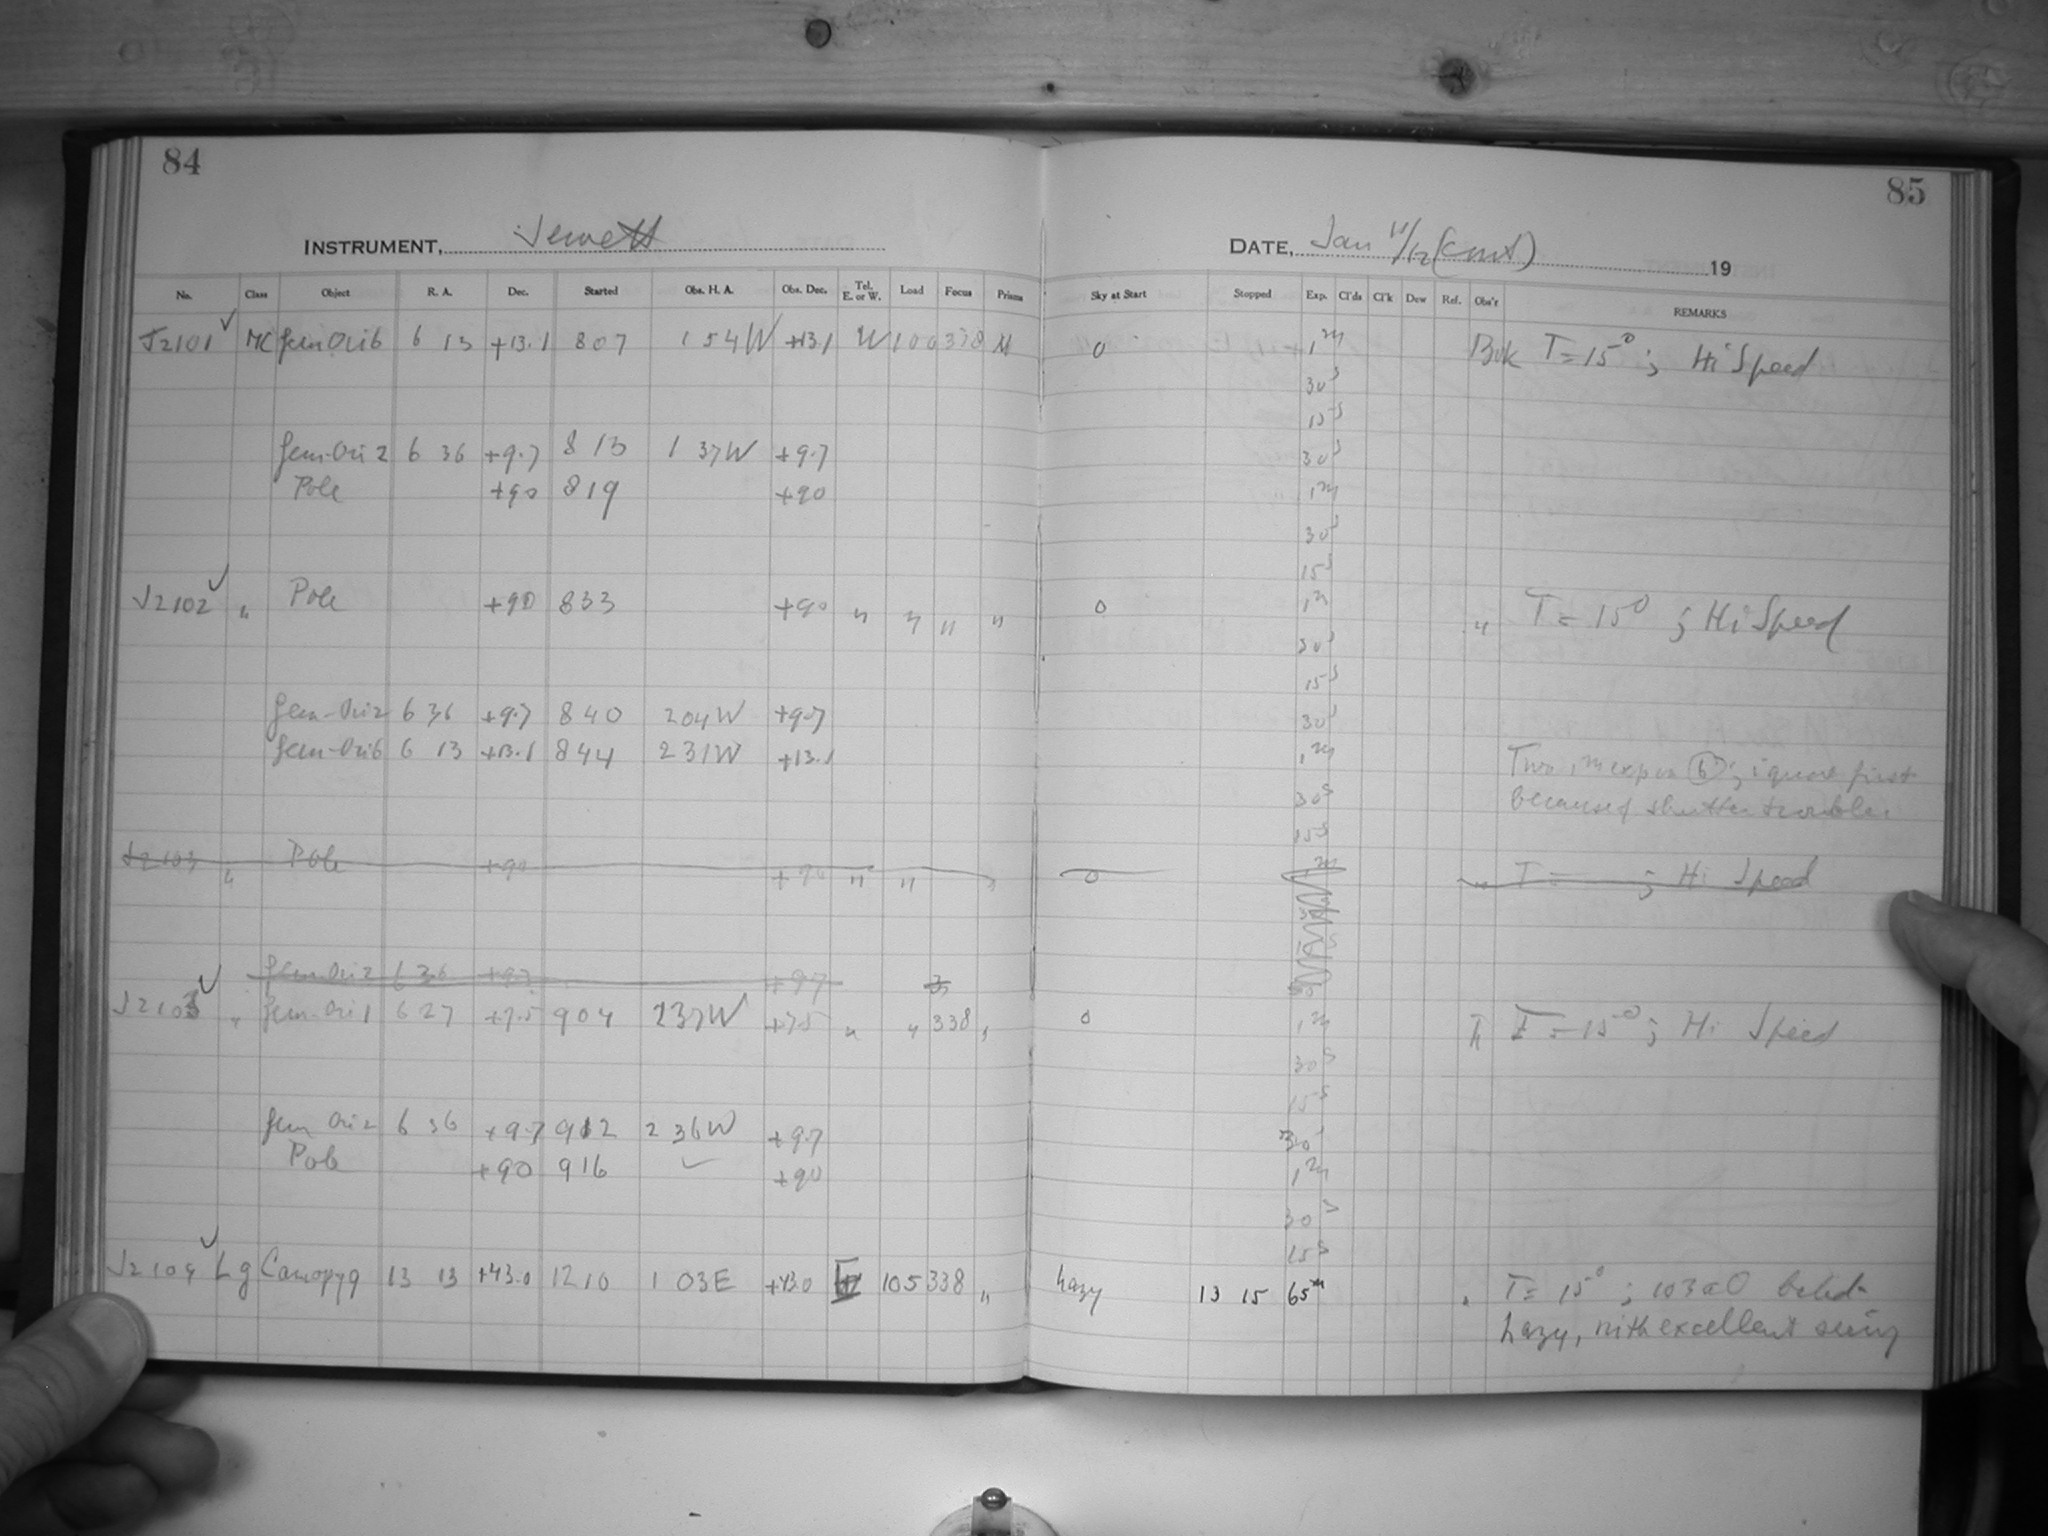 84
85
INSTRUMENT, Jewett
DATE, Jan 11/12 (cont) 19
No. Class Object R. A. Dec. Started Obs. H. A. Obs. Dec. Tel. E. or W. Load Focus Prisms Sky at Start Stopped Exp. Cl'ds Cl'k Dew Ref. Obs'r REMARKS
J2101 ✓ MC Gem Ori 6 6 13 +13.1 807 1 54W +13.1 W 100 338 M 0 1m Bok T = 15° ; Hi Speed
30s
15s
Gem-Ori 2 6 36 +9.7 8 13 1 37W +9.7 30s
Pole +90 819 +90 1m
30s
15s
J2102 ✓ " Pole +90 833 +90 " " " " 0 1m " T = 15° ; Hi Speed
30s
15s
Gem-Ori 2 6 36 +9.7 840 204W +9.7 30s
Gem-Ori 6 6 13 +13.1 844 231W +13.1 1m Two 1m exp on 6 ; ignore first
30s because of shutter troubles
15s
J2103 " Pole +90 +90 " " " 0 1m " T = ; Hi Speed
Gem Ori 2 6 36 +9.7 +9.7
J2103 ✓ " Gem-Ori 1 6 27 +7.5 904 237W +7.5 " " 338 " 0 1m T = 15° ; Hi Speed
30s
15s
Gem Ori 2 6 36 +9.7 912 2 36W +9.7 30s
Pole +90 916 +90 1m
30s
15s
J2104 ✓ Lg 13 13 +43.0 1210 1 03E +430 E 105 338 " hazy 13 15 65m " T = 15° ; 103aO baked-
hazy, with excellent seeing